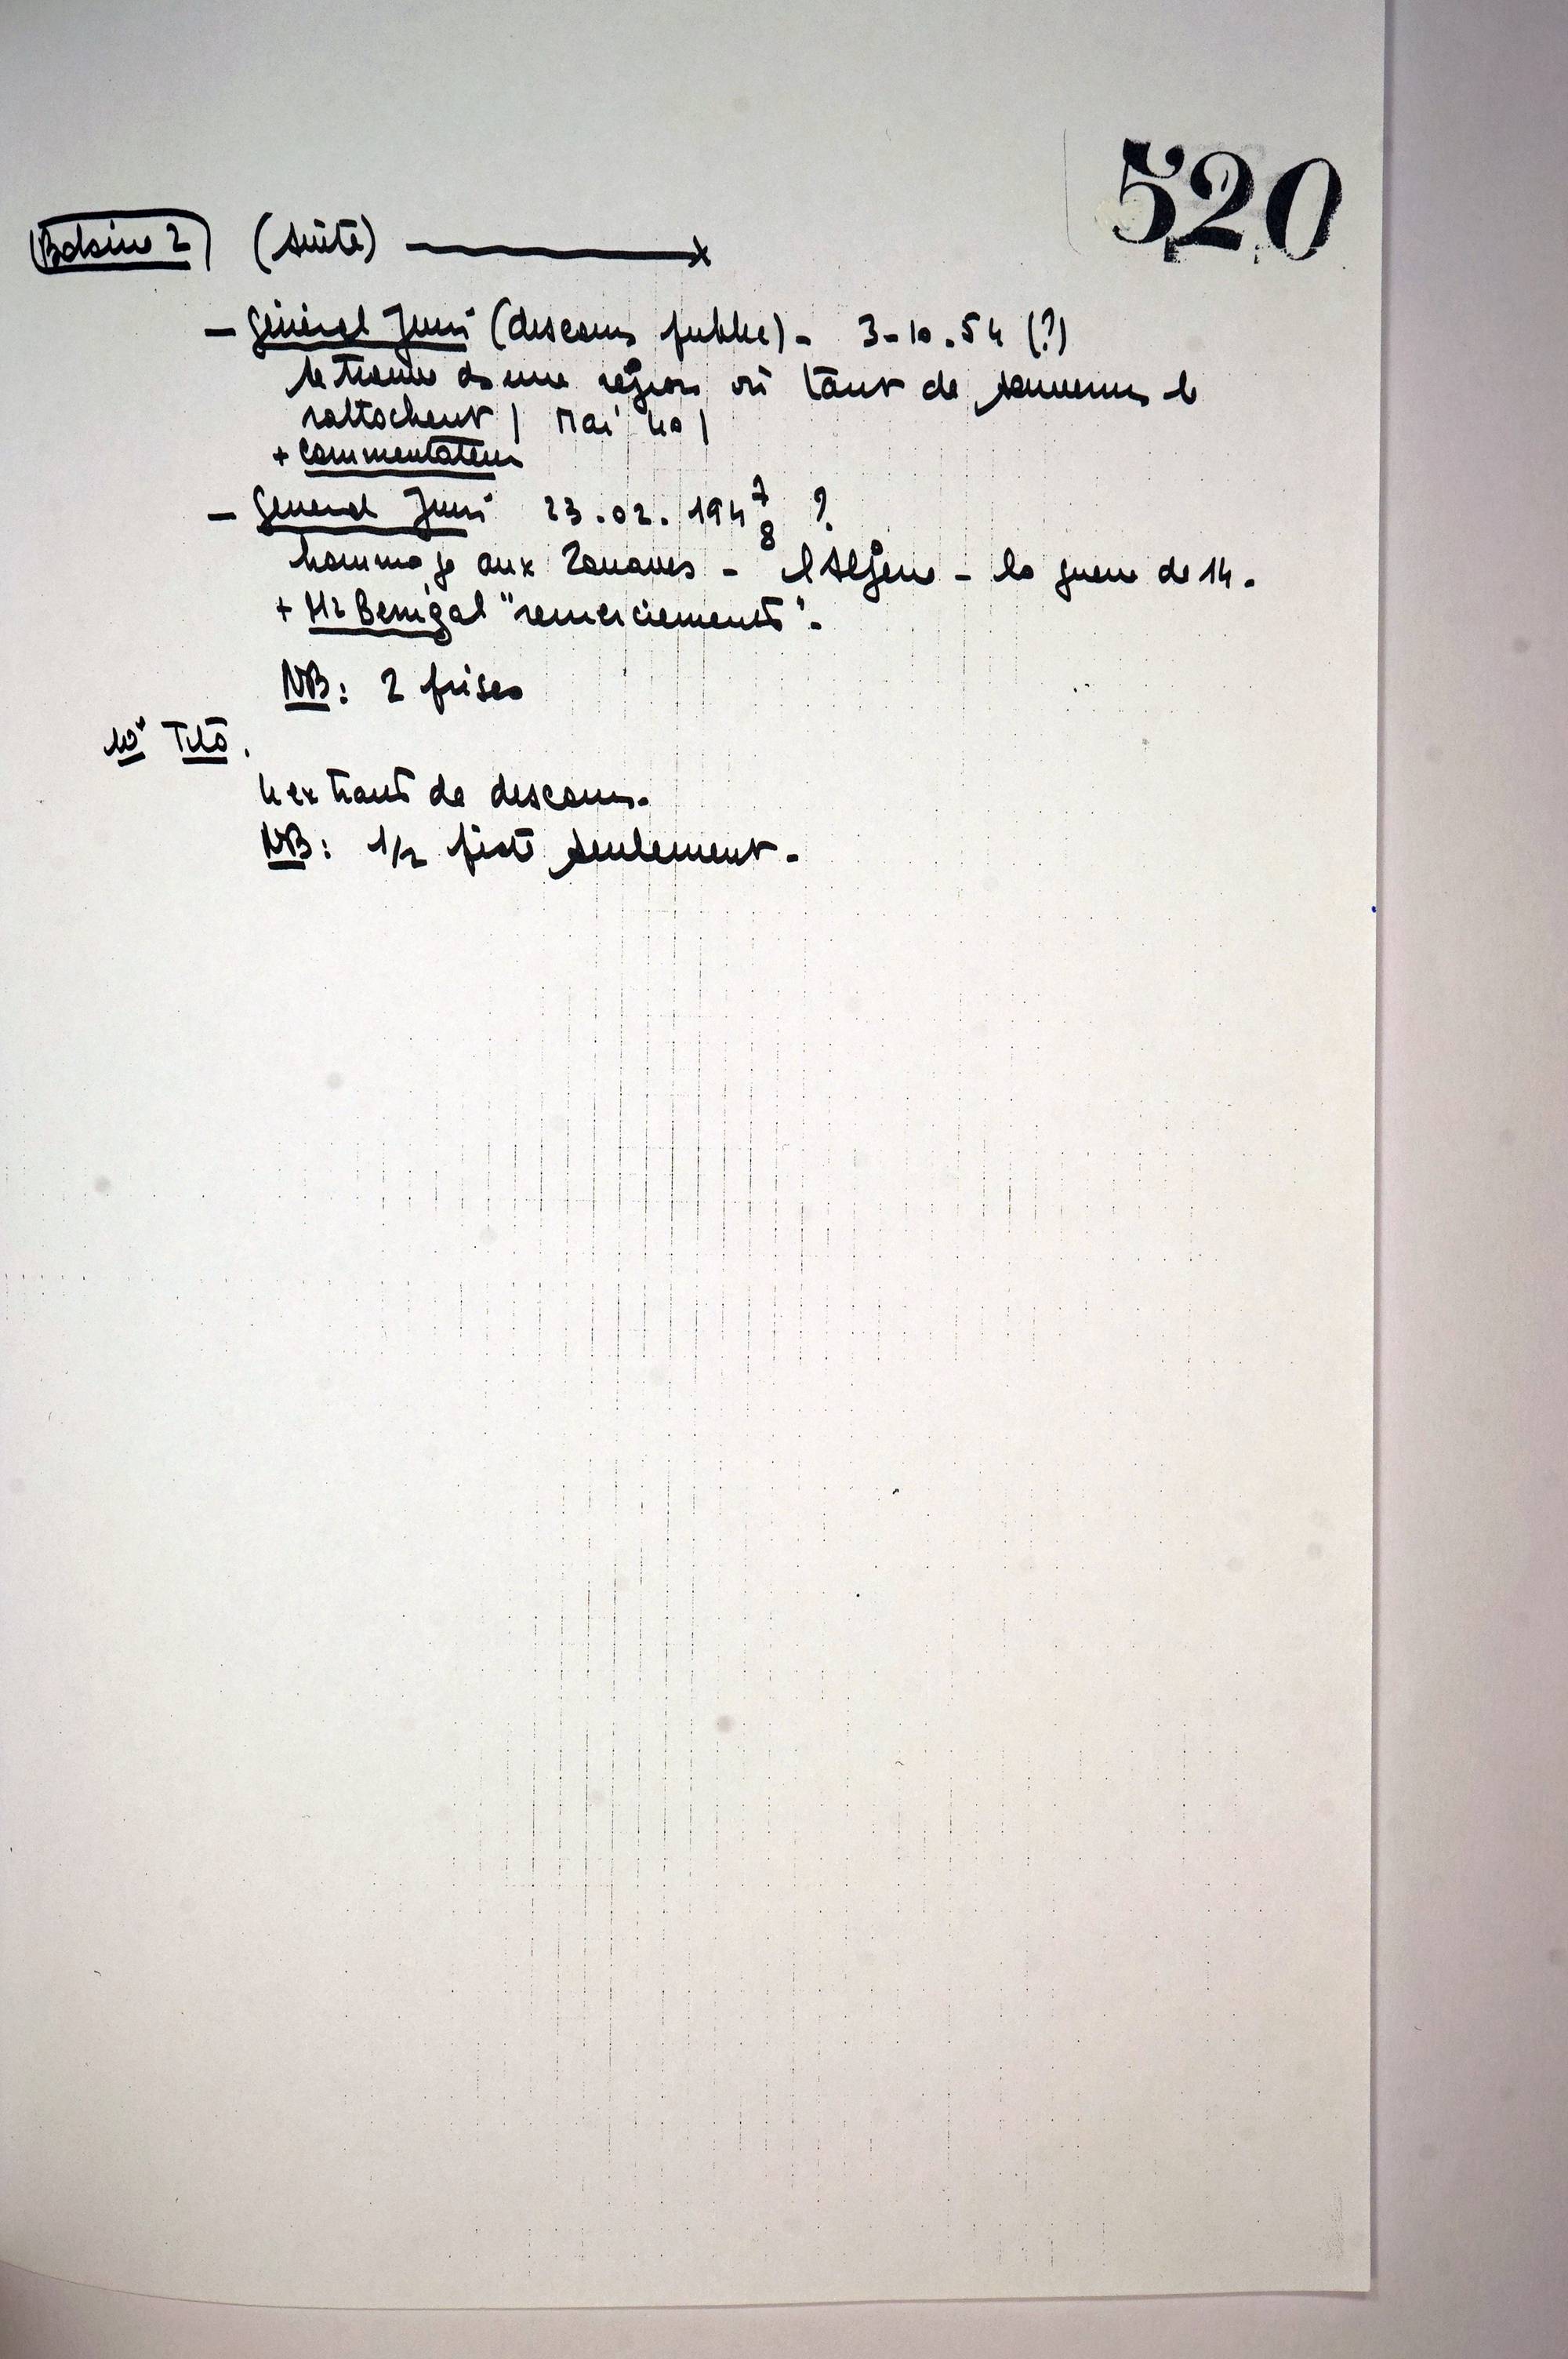 520
Bobine 2 (suite)
- Général Juin (discours public) - 3-10.54 (?)
se trouve ds une région où tant de souvenirs le
rattachent | Mai 40 |
+ commentateur
- General Juin 23.02.194 7 8 ?
hommage aux Zouaves - l'Algérie - la guerre de 14.
+ Mr "remerciements".
NB: 2 prises
Tito.
4 extraits de discours.
NB: 1/2 piste seulement.